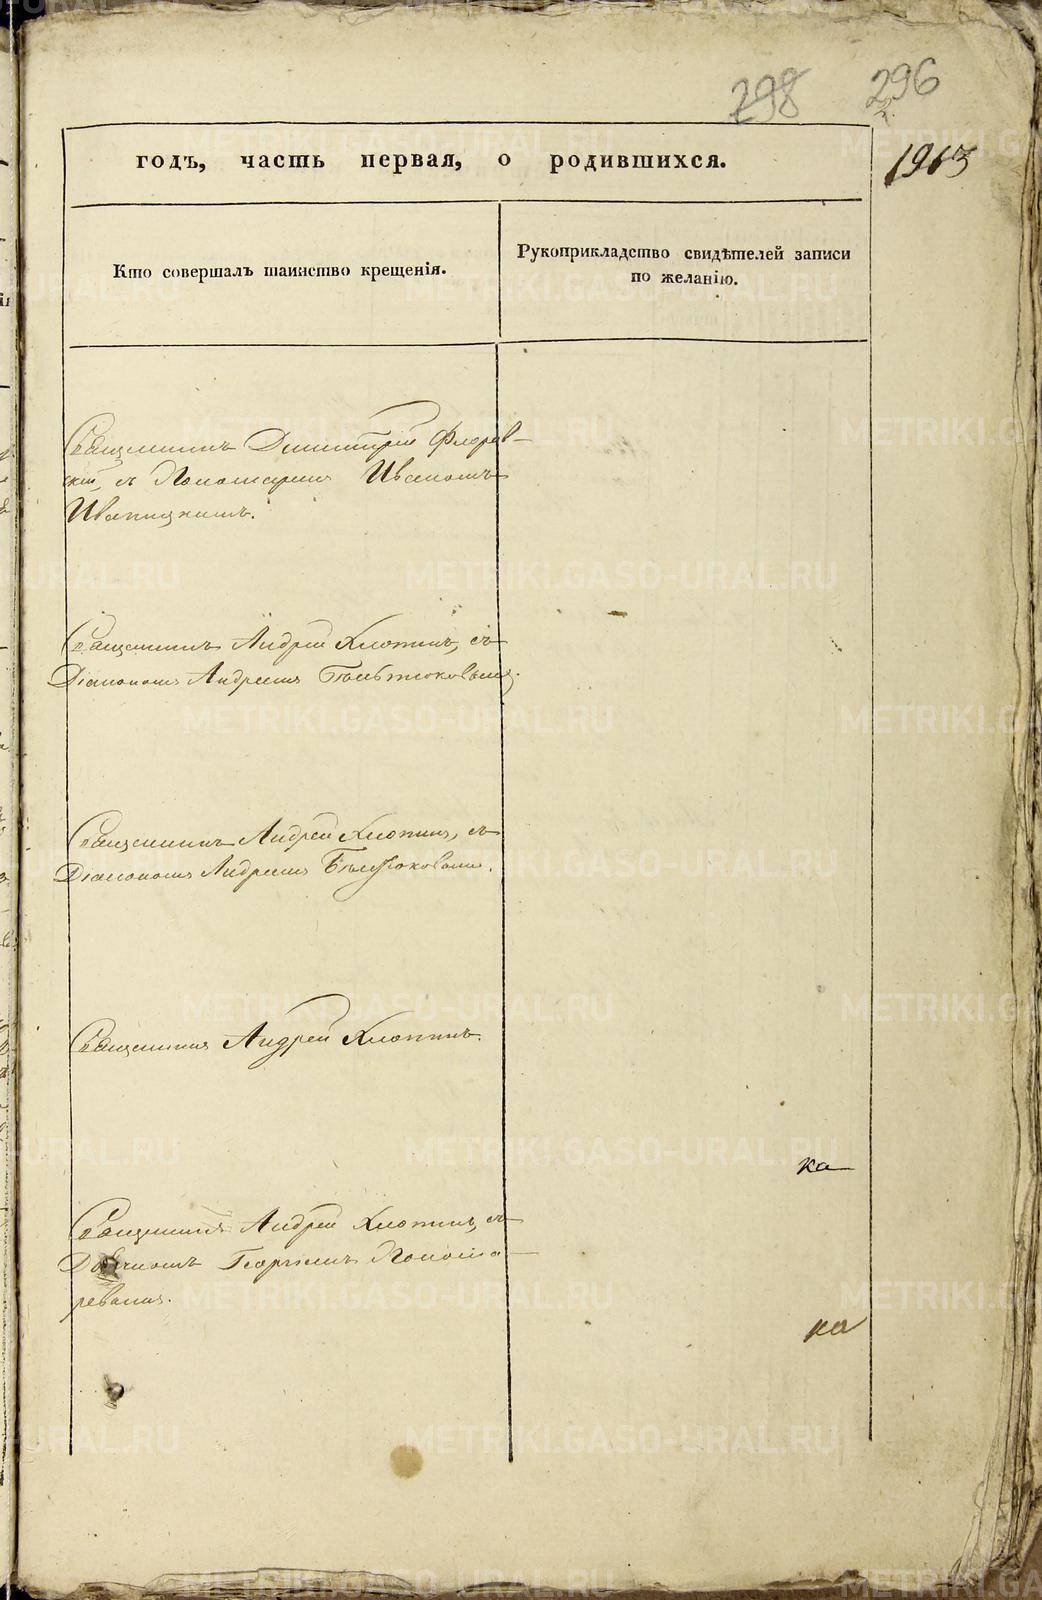 298 296
годъ, часть первая, о родившихся.
Кто совершалъ таинство крещенія.
Рукоприкладство свидѣтелей записи
по желанію.
Священникъ Димитрій Флоров-
скій, съ Пономаремъ Иваномъ
Священникъ Андрей Клопинъ, съ
Діакономъ Андреемъ
Священникъ Андрей Клопинъ, съ
Діакономъ Андреемъ
Священникъ Андрей Клопинъ.
ка
Священникъ Андрей Клопинъ, съ
Георгіемъ Понома-
ревымъ.
ка
METRIKI.GASO-URAL.RU